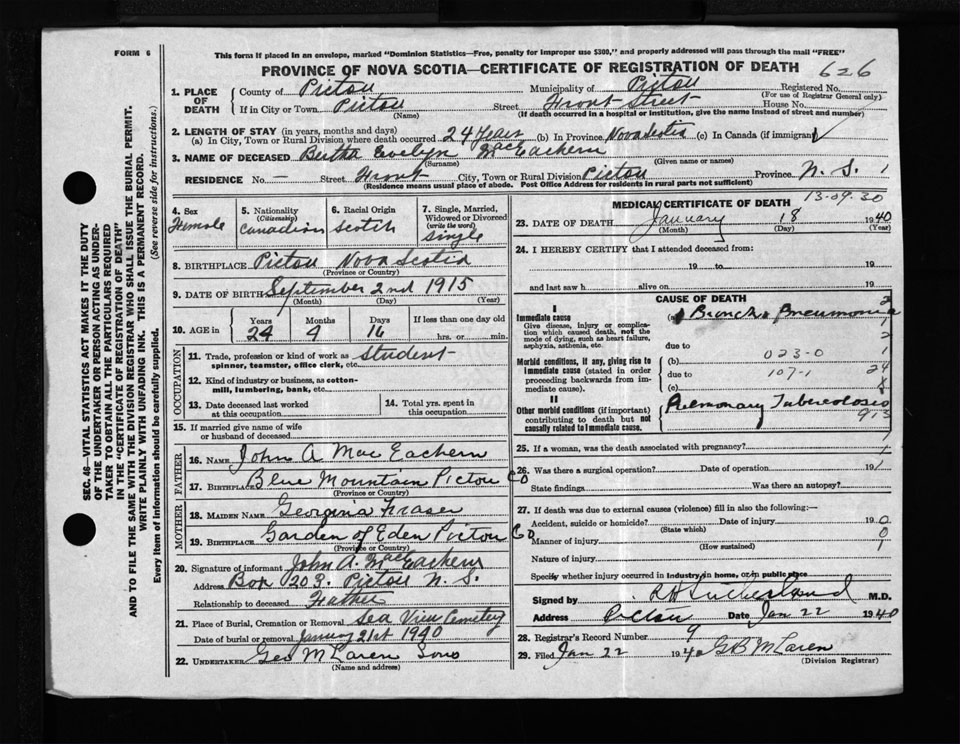 FORM 6
This form if placed in an envelope, marked "Dominion Statistics—Free, penalty for improper use $300," and properly addressed will pass through the mail "FREE"
PROVINCE OF NOVA SCOTIA—CERTIFICATE OF REGISTRATION OF DEATH
626
SEC. 46—VITAL STATISTICS ACT MAKES IT THE DUTY
OF THE UNDERTAKER OR PERSON ACTING AS UNDER-
TAKER TO OBTAIN ALL THE PARTICULARS REQUIRED
IN THE "CERTIFICATE OF REGISTRATION OF DEATH"
AND TO FILE THE SAME WITH THE DIVISION REGISTRAR WHO SHALL ISSUE THE BURIAL PERMIT.
WRITE PLAINLY WITH UNFADING INK. THIS IS A PERMANENT RECORD.
Every item of Information should be carefully supplied. (See reverse side for instructions.)
1. PLACE OF DEATH
County of Pictou Municipality of Pictou Registered No.
(For use of Registrar General only)
If in City or Town Pictou Street Front Street House No.
(Name) (If death occurred in a hospital or institution, give the name instead of street and number)
2. LENGTH OF STAY (in years, months and days)
(a) In City, Town or Rural Division where death occurred 24 Years (b) In Province Nova Scotia (c) In Canada (if immigrant) ✓
3. NAME OF DECEASED Bertha Evelyn MacEachern
(Surname) (Given name or names)
RESIDENCE No. — Street Front City, Town or Rural Division Pictou Province N. S. 1
(Residence means usual place of abode. Post Office Address for residents in rural parts not sufficient)
13-09.30
4. Sex Female
5. Nationality (Citizenship) Canadian
6. Racial Origin Scotch
7. Single, Married, Widowed or Divorced (write the word) Single
8. BIRTHPLACE Pictou Nova Scotia
(Province or Country)
9. DATE OF BIRTH September 2nd 1915
(Month) (Day) (Year)
10. AGE in Years Months Days If less than one day old
24 4 16 hrs. or min.
OCCUPATION
11. Trade, profession or kind of work as Student
spinner, teamster, office clerk, etc.
12. Kind of industry or business, as cotton-
mill, lumbering, bank, etc.
13. Date deceased last worked at this occupation
14. Total yrs. spent in this occupation
15. If married give name of wife
or husband of deceased
FATHER
16. NAME John A Mac Eachern
17. BIRTHPLACE Blue Mountain Pictou Co
(Province or Country)
MOTHER
18. MAIDEN NAME Georgina Fraser
19. BIRTHPLACE Garden of Eden Pictou Co
(Province or Country)
20. Signature of informant John A. MacEachern
Address Box 203. Pictou N. S.
Relationship to deceased Father
21. Place of Burial, Cremation or Removal Sea View Cemetery
Date of burial or removal January 21st 1940
22. UNDERTAKER Geo McLaren Sons
(Name and address)
MEDICAL CERTIFICATE OF DEATH
23. DATE OF DEATH January 18 1940
(Month) (Day) (Year)
24. I HEREBY CERTIFY that I attended deceased from:
19 to 19
and last saw h alive on 19
CAUSE OF DEATH
I
Immediate cause
Give disease, injury or complica-
tion which caused death, not the
mode of dying, such as heart failure,
asphyxia, asthenia, etc.
(a) Broncho Pneumonia
due to
Morbid conditions, if any, giving rise to
immediate cause (stated in order
proceeding backwards from im-
mediate cause).
(b) 023-0
due to 107-1
(c)
II
Other morbid conditions (if important)
contributing to death but not
causally related to immediate cause.
Pulmonary Tuberculosis
2
1
2
1
24
8
913
1
25. If a woman, was the death associated with pregnancy? 1
26. Was there a surgical operation? Date of operation 19 1
State findings Was there an autopsy?
27. If death was due to external causes (violence) fill in also the following:—
Accident, suicide or homicide? Date of injury 19 0
(State which)
Manner of injury 0
(How sustained)
Nature of injury
Specify whether injury occurred in industry, in home, or in public place
Signed by R H Sutherland M.D.
Address Pictou Date Jan 22 1940
28. Registrar's Record Number 9
29. Filed Jan 22 1940 G B McLaren
(Division Registrar)